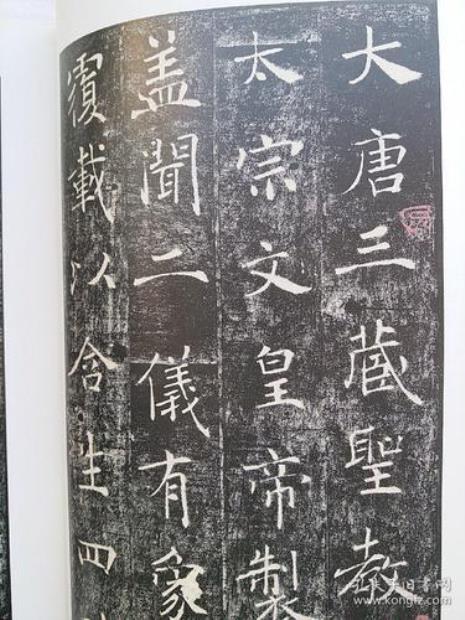 大唐三蔵聖教
太宗文皇帝製
盖聞二儀有象
覆載以含生四
孔夫子旧书网